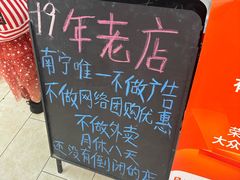 19年老店
南宁唯一不做广告
不做网络团购优惠
不做外卖
月休八天
还没有倒闭的店
荣
大众